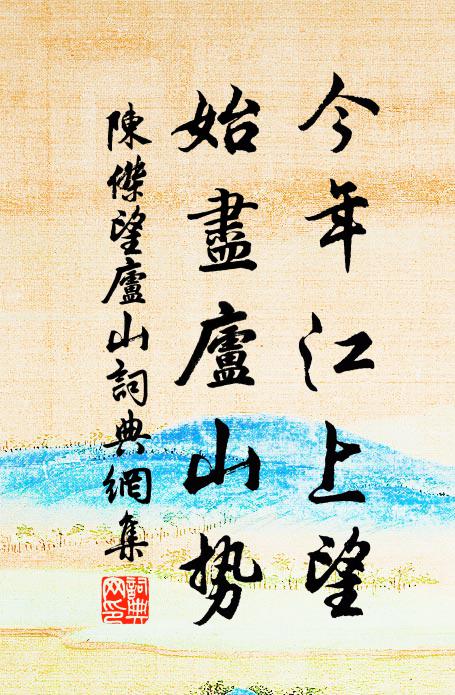 今年江上望
始盡廬山势
陳傑望廬山詞典網集
詞典